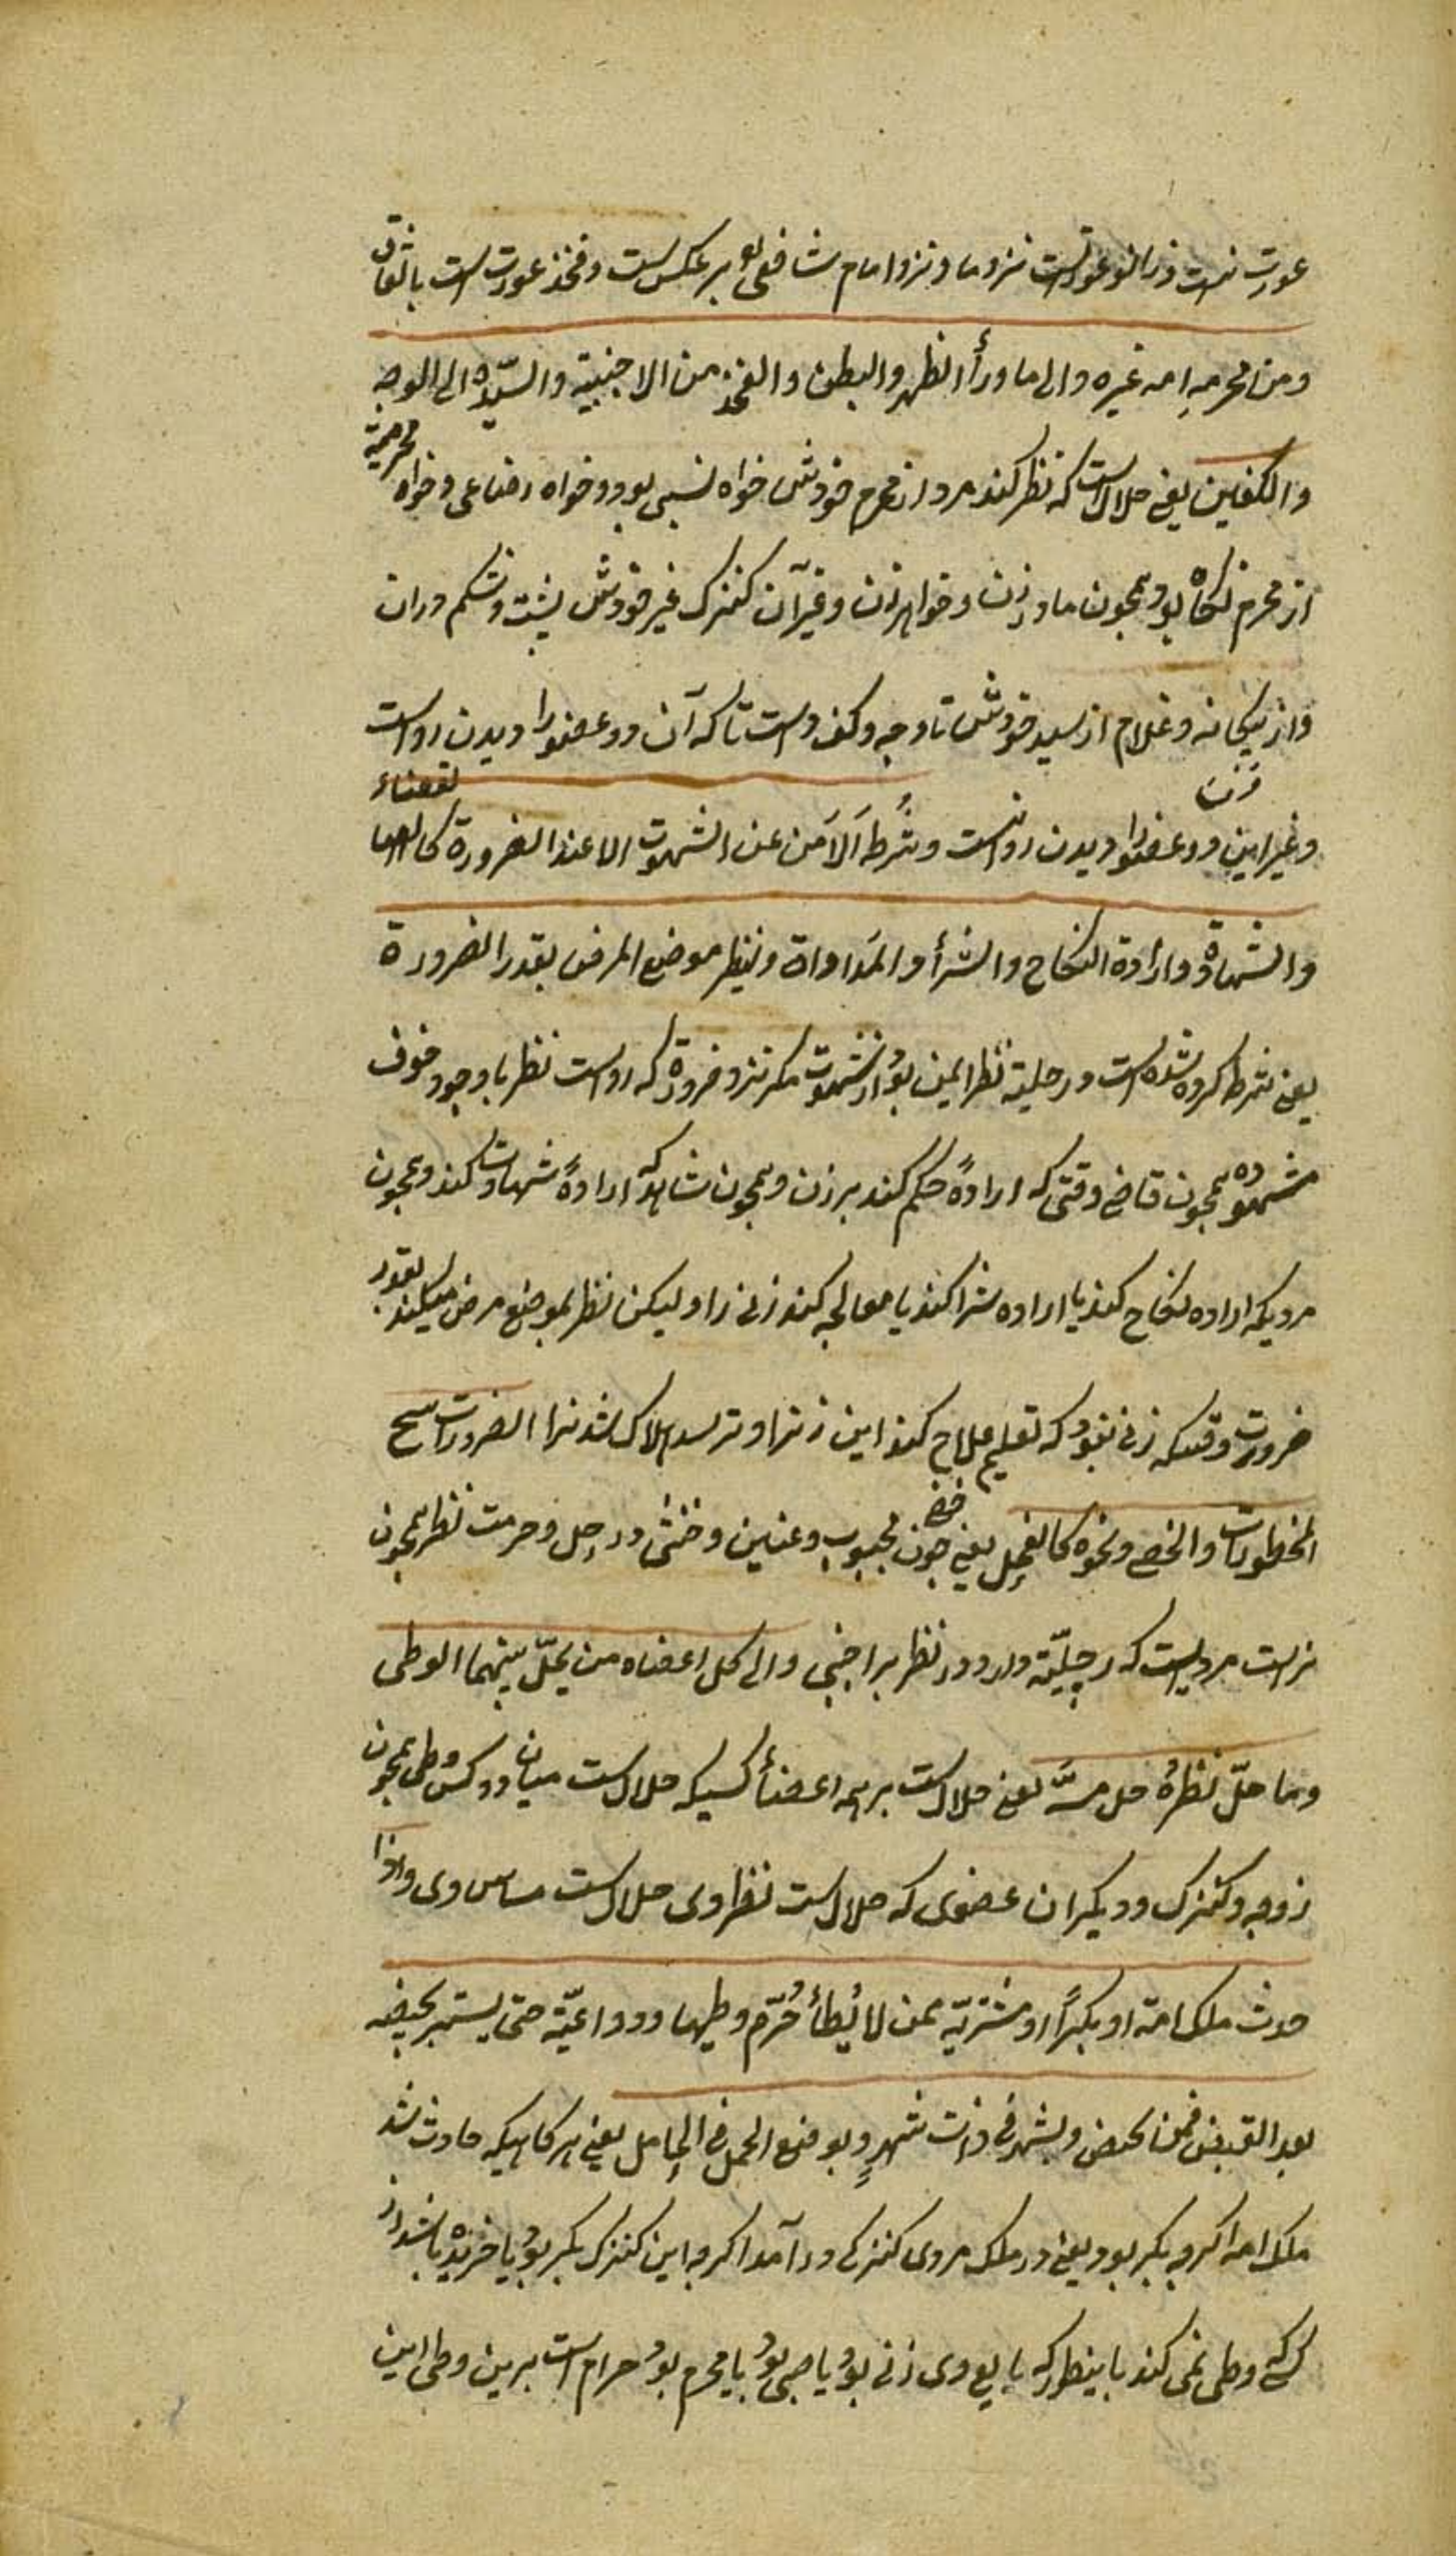 عورت نیست و زانو عورتست نزد ما و نزد امام شافعی بر عکس است و فخذ عورت است باتفاق
ومن محرمه امه غیره والی ما وراء الظهر والبطن والفخذ من الاجنبیة والسیدة الی الوجه
والکفین یعنی حلال است که نظر کند مرد از محرم خودش خواه نسبی بود و خواه رضاعی و خواه محرمیة
از محرم نکاح بود همچون مادر زن و خواهر زن و غیر آن کنیزک غیر خودش پشت و شکم و ران
و از بیکانه و غلام از سید خودش تا وجه و کف دست تا که آن دو عضو را دیدن رواست
و غیر این دو عضو را دیدن روا نیست وشرطه الامن عن الشهوت الا عند الضرورة کالقضاء
والشهادة وارادة النکاح والشراء والمداواة وینظر موضع المرض بقدر الضرورة
یعنی شرط کرده شده است در حلیة نظر ایمن بود از شهوت مکر نزد ضرورة که رواست نظر با وجود خوف
شهوة همچون قاضی وقتی که ارادهٔ حکم کند بر زن و همچون شاهد که ارادهٔ شهادت کند و همچون
مردیکه اراده نکاح کند یا اراده شرا کند یا معالجه کند زنی را ولیکن نظر بموضع مرض میکند بقدر
ضرورت وقتیکه زنی نبود که تعلیم علاج کند این زنرا و ترسد هلاک شد نرا الضرورات تبیح
المحظورات والخصی ونحوه کالفحل یعنی خصی چون مجبوب و عنین و خنثی در حل و حرمت نظر همچون
نراست مردیست که رجلیّة دارد در نظر بر اجنبی والی کل اعضاه من یحلّ بینهما الوطی
وما حلّ نظره حل مسّه یعنی حلال است بر همه اعضأ کسیکه حلال است میان دو کس وطی همچون
زوجه و کنیزک و دیکر آن عضوی که حلال است نظر وی حلال است مساس وی واذا
حدث ملک امة او بکراً او مشتریة ممن لا یُطأ حُرّم وطیها ودواعیّه حتی یستبر بحیضه
بعد القبض فمن تحیض وبشهر فی ذات شهرٍ وبوضع الحمل فی الحامل یعنی هر کاهیکه حادث شد
ملک امه اکرچه بکر بود یعنی در ملک مردی کنیزکی در آمد اکرچه این کنیزک بکر بود یا خریده باشد از
کسیکه وطی نمی کند باینطور که بایع وی زنی بود یا صبی بود یا محرم بود حرام است برین وطی این